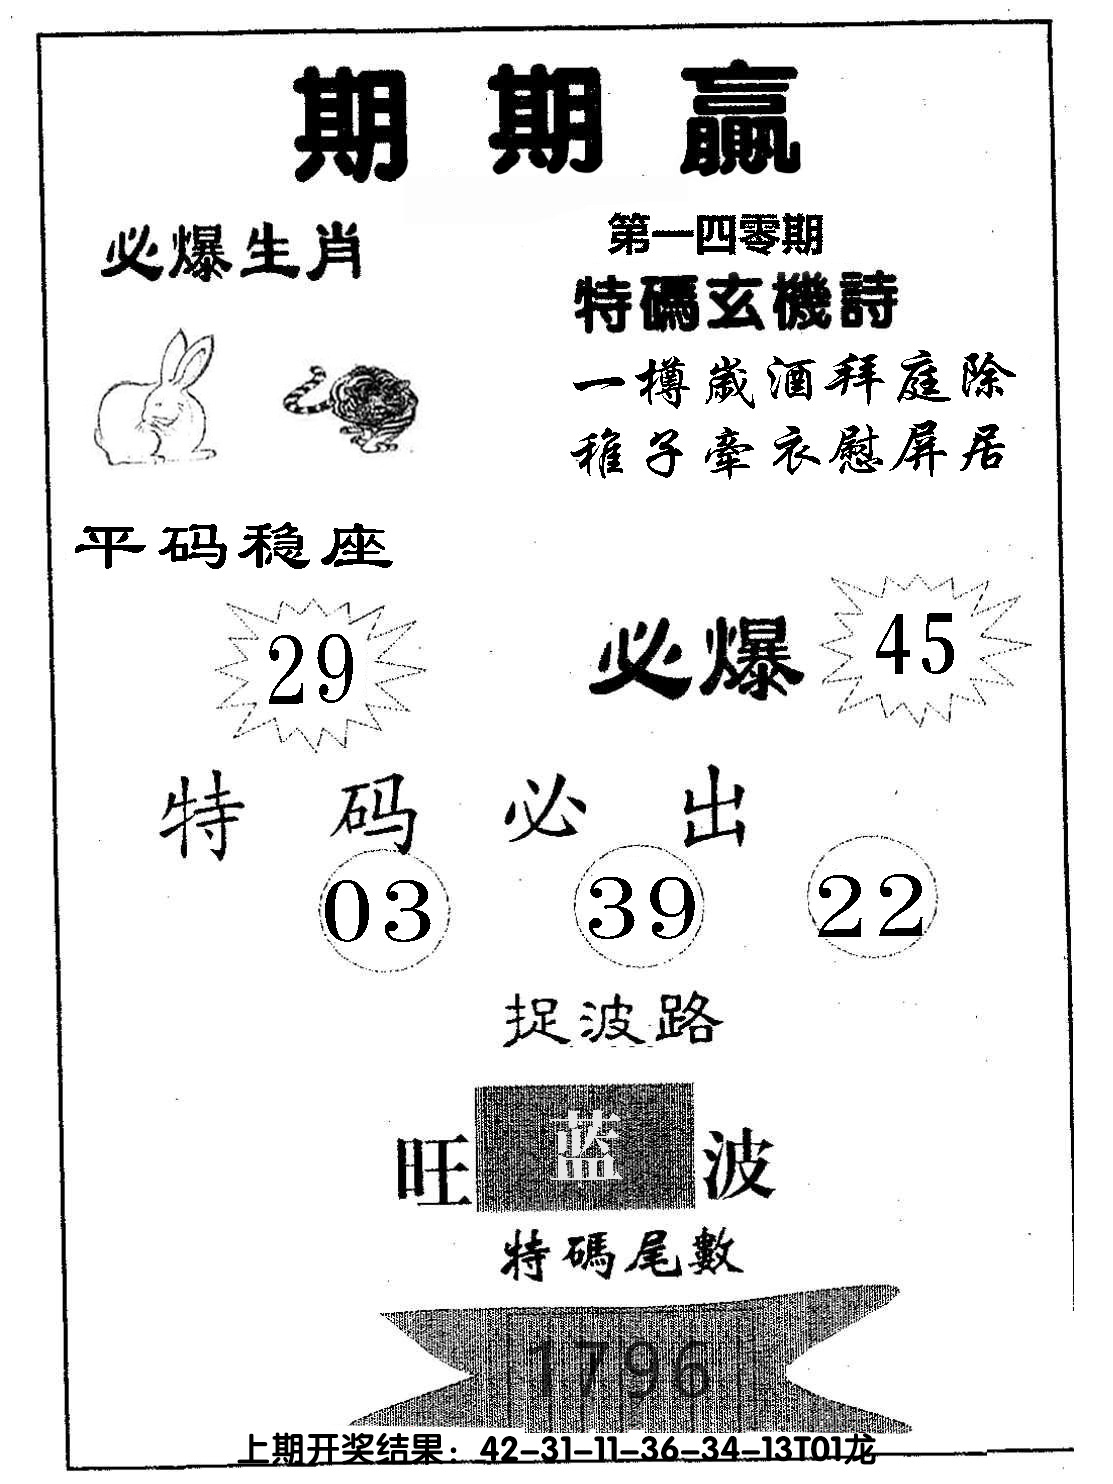 期期赢
必爆生肖
第一四零期
特碼玄機詩
一樽歲酒拜庭除
稚子牽衣慰屏居
平码稳座
29
必爆 45
特码必出
03 39 22
捉波路
旺蓝波
特碼尾數
1796
上期开奖结果：42-31-11-36-34-13T01龙